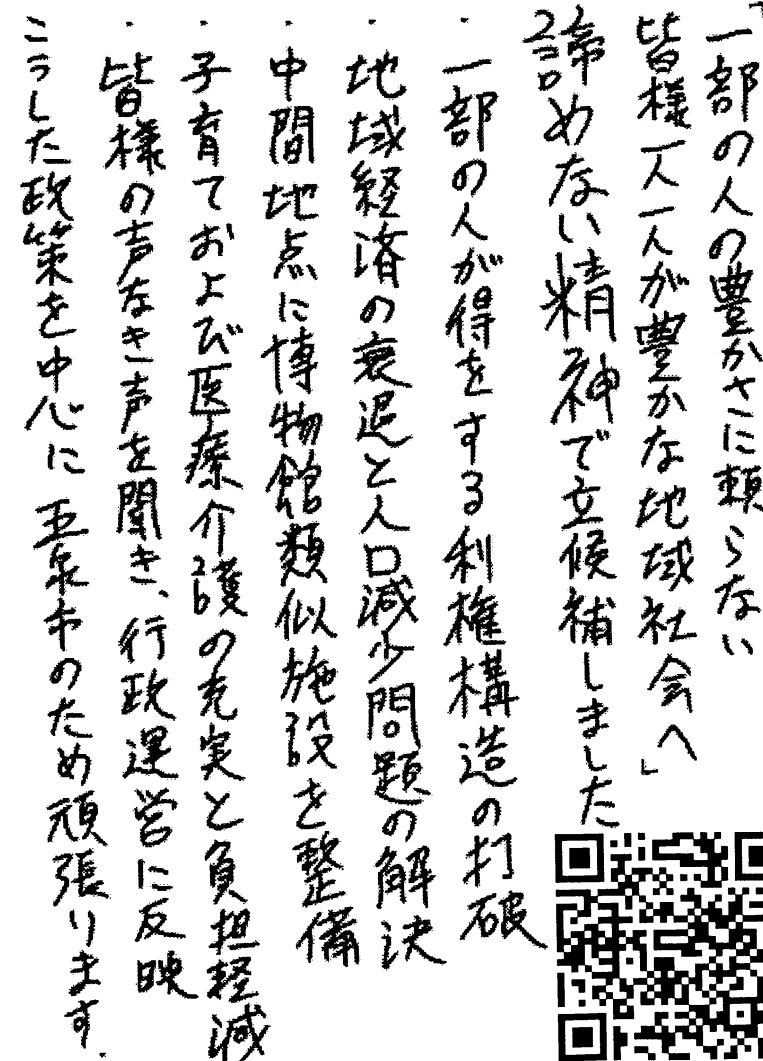 「一部の人の豊かさに頼らない
皆様一人一人が豊かな地域社会へ」
諦めない精神で立候補しました
・一部の人が得をする利権構造の打破
・地域経済の衰退と人口減少問題の解決
・中間地点に博物館類似施設を整備
・子育ておよび医療介護の充実と負担軽減
・皆様の声なき声を聞き、行政運営に反映
こうした政策を中心に五泉市のため頑張ります.